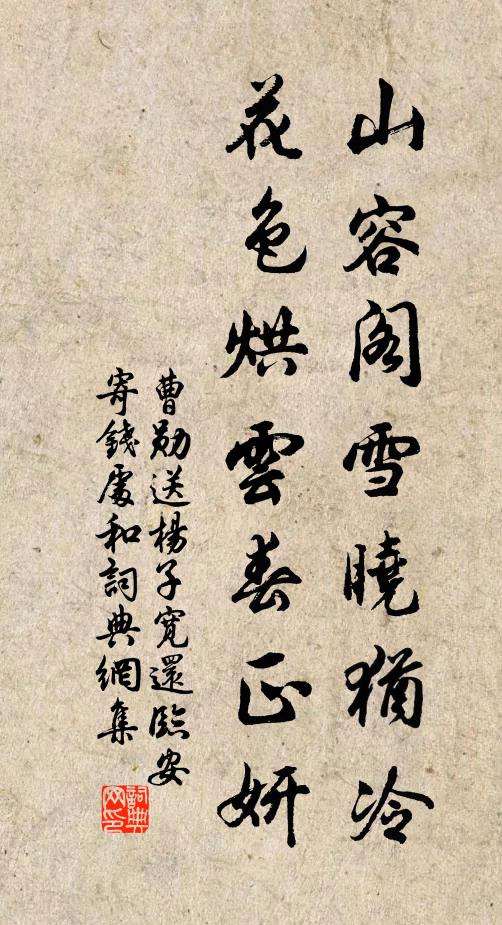 山容阁雪曉猶冷
花色烘雲春正妍
曹勛送楊子寬還臨安
寄錢處和詞典網集
詞典網印